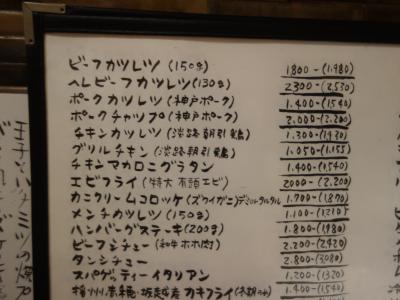 ビーフカツレツ(150g) 1800-(1.980)
ヘレビーフカツレツ(130g) 2300-(2,530)
ポークカツレツ(神戸ポーク) 1.400-(1540)
ポークチャップ(神戸ポーク) 2.000-(2.200)
チキンカツレツ(淡路朝引鶏) 1.300-(1,430)
グリルチキン(淡路朝引鶏) 1.050-(1.155)
チキンマカロニグラタン 1.400-(1,540)
エビフライ(特大有頭エビ) 2000-(2.200)
カニクリームコロッケ(ズワイガニ) 1.700-(1.870)
メンチカツレツ(150g) 1.100-(1210)
ハンバーグステーキ(200g) 1.800-(1,980)
ビーフシチュー(和牛ホホ肉) 2.200-(2,420)
タンシチュー 2.800-(3080)
スパゲッティーイタリアン 1.200-(1320)
播州赤穂・坂越産カキフライ(冬期のみ) 1.400-(1540)